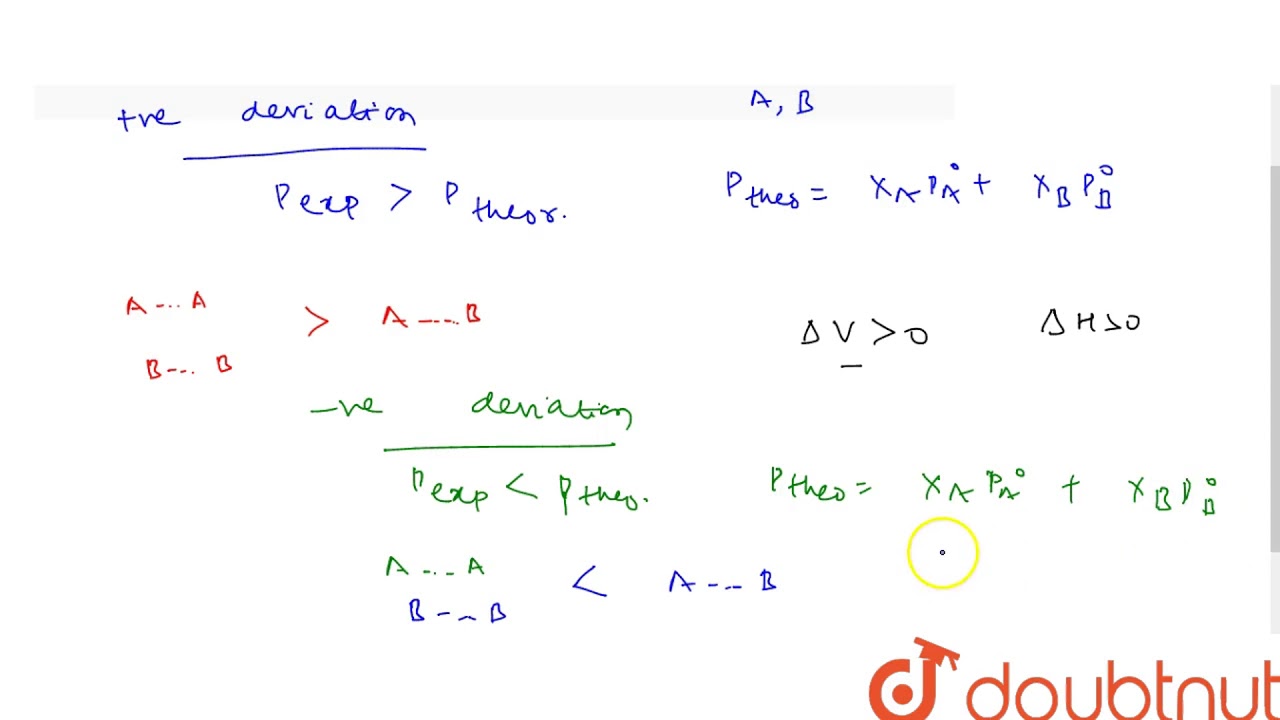 +ve deviation
A, B
P exp > P theor.
P theo = X_A P_A° + X_B P_B°
A ---- A
> A ----- B
B ---- B
ΔV > 0 ΔH > 0
-ve deviation
P exp < P theo.
P theo = X_A P_A° + X_B P_B°
A ---- A
< A ---- B
B ---- B
doubtnut